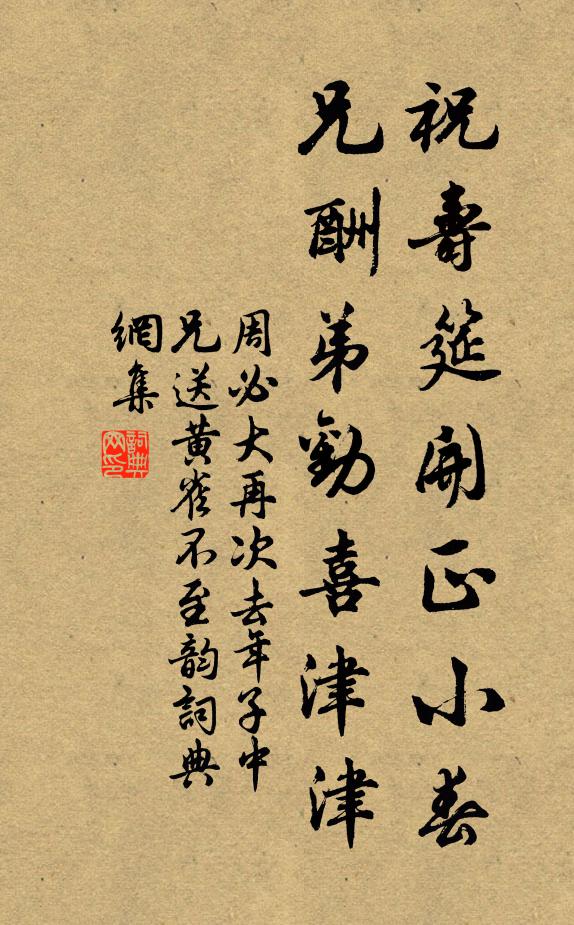 祝壽筵開正小春
兄酬弟勸喜津津
周必大再次去年子中
兄送黄雀不至韵詞典
網集
詞典
网印